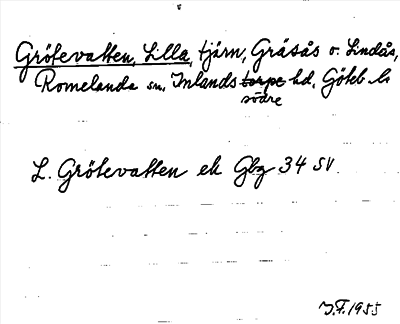 Grötevatten, Lilla, tjärn, Gråsås o. Lindås,
Romelanda sn, Inlands torpe hd, Göteb. l.
södre
L. Grötevatten ek Gbg 34 SV.
J.F. 1955